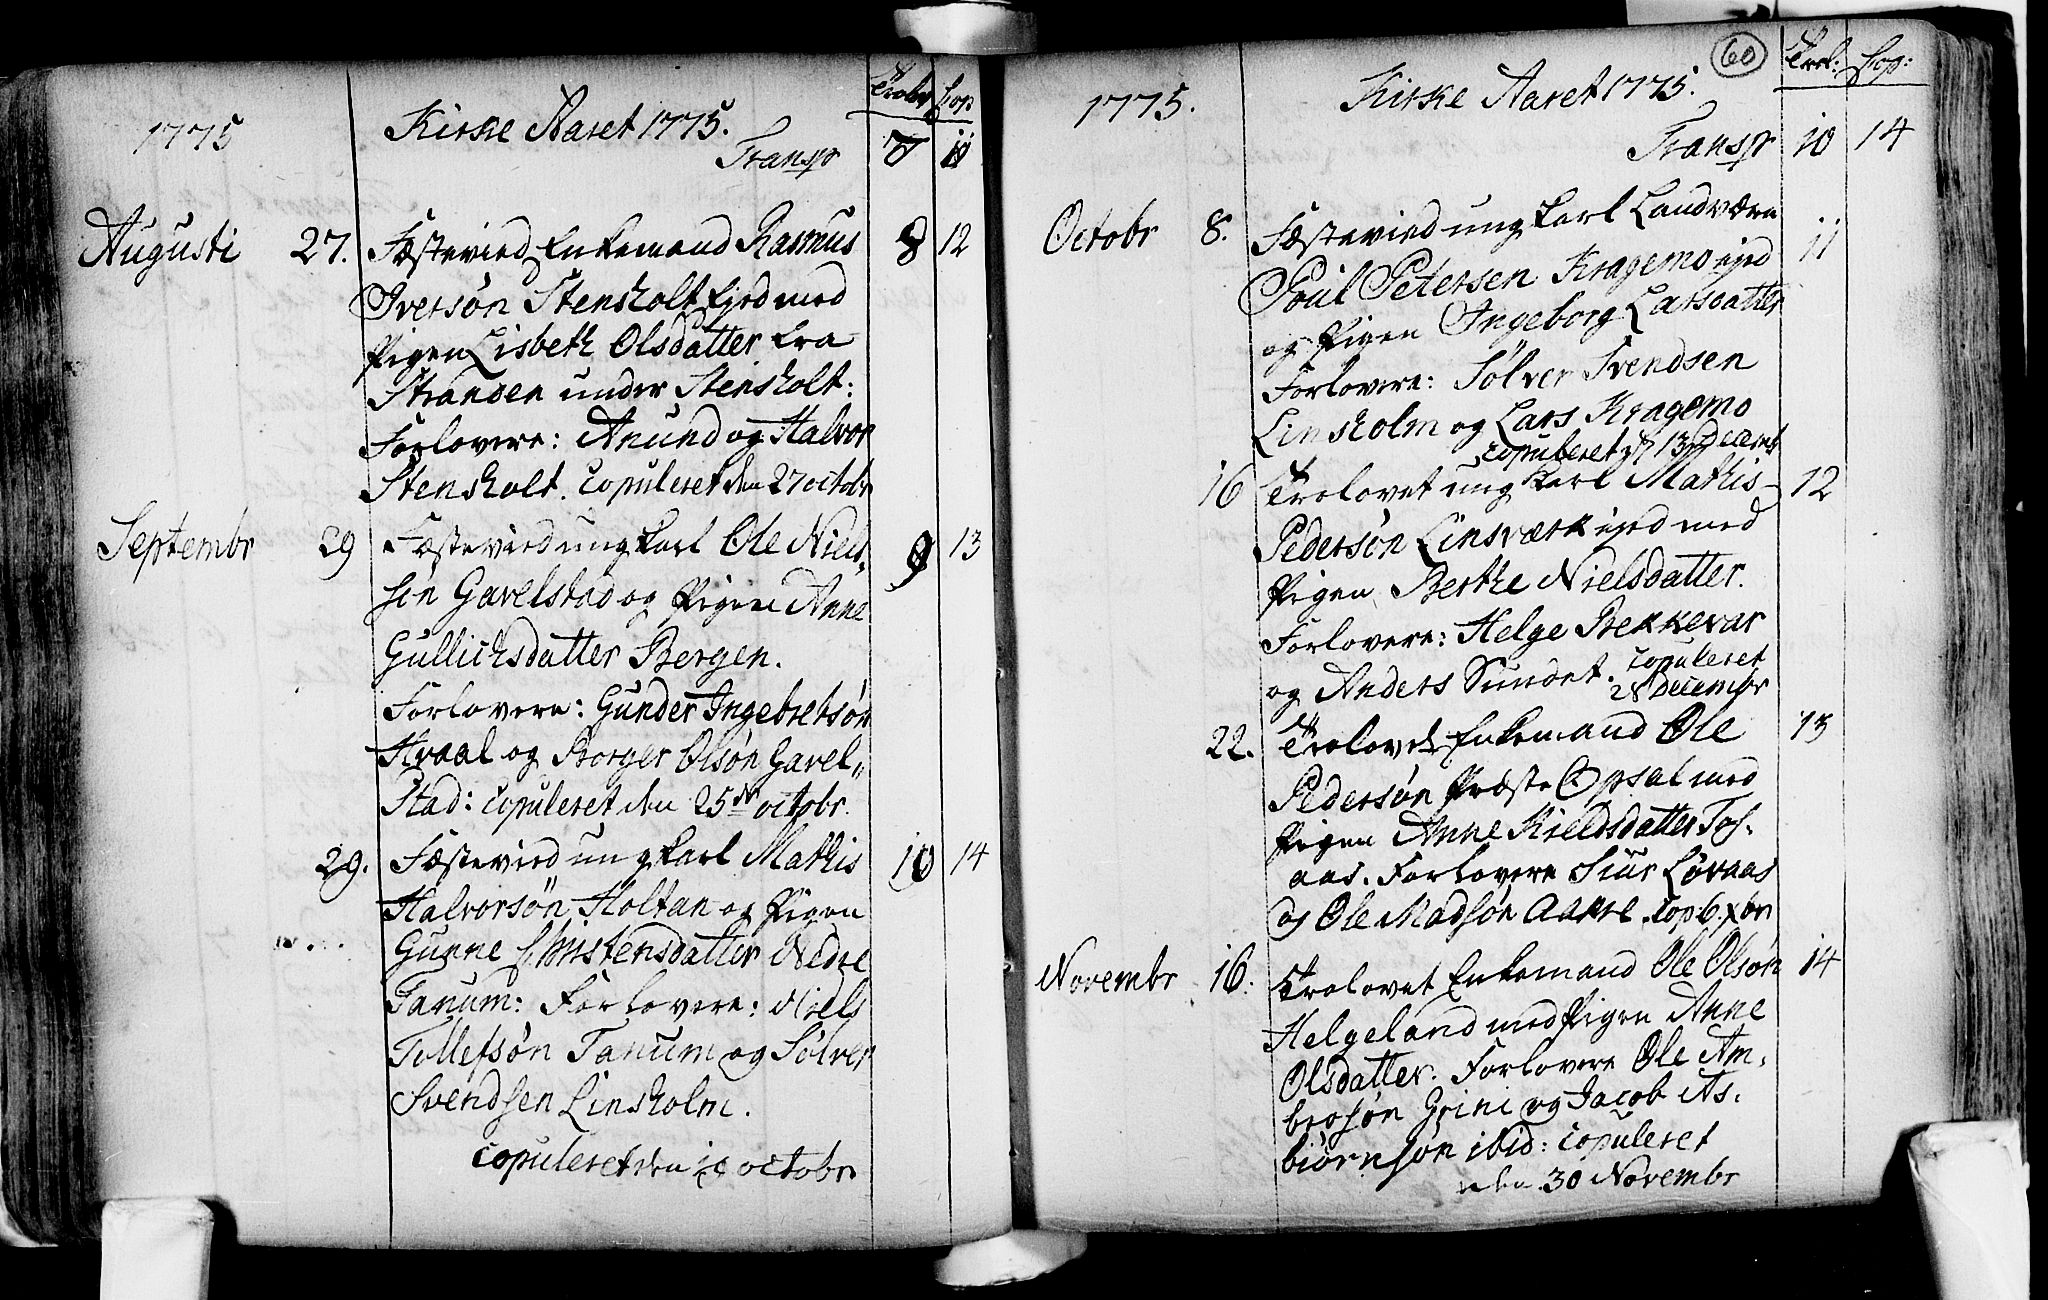 1775
Kirke Aaret 1775.
Trolov Cop
Transp 7 11
Augusti 27. Fæstevied Enkemand Rasmus 8 12
Iversøn Stensholt Ejed med
Pigen Lisbeth Olsdatter fra
Stranden under Stensholt:
Forlovere: Anund og Halvor
Stensholt. copuleret den 27 octobr
Septembr 29 Fæstevied ung karl Ole Niels- 9 13
sen Gavelstad og Pigen Anne
Gullichsdatter Bergen.
Forlovere: Gunder Ingebretsøn
Hvaal og Borger Olsøn Gavel„
Stad: copuleret den 25de octobr.
29. Fæstevied ung karl Mathis 10 14
Halvorsøn Holtan og Pigen
Gunne Christensdatter Nedre
Tanum: Forlovere: Niels
Tollefsøn Tanum og Sølver
Svendsen Linsholm.
copuleret den octobr
60
1775.
Kirke Aaret 1775.
Trol: Cop:
Transp 10 14
Octobr 8. Fæstevied ung karl Landværn 11
Poul Petersen Kragemo ejed
og Pigen Ingeborg Larsdatter
Forlovere: Sølver Svendsen
Linsholm og Lars Kragemo
copuleret d 13 Decembr
16 Trolovet ung karl Mathis 12
Pedersøn Linsværk ejed med
Pigen Berthe Nielsdatter.
Forlovere: Helge Bekkevar
og Anders Sundet. copuleret
28 Decembr
22. Trolovet Enkemand Ole 13
Pedersøn Præste Opsal med
Pigen Anne Kieldsdatter Tos-
aas. Forlovere Siur Løvaas
og Ole Madsøn Aakre. cop: 6. xbr
Novembr 16. Trolovet Enkemand Ole Olsøn 14
Helgeland med Pigen Anne
Olsdatter. Forlovere Ole Am-
brosøn Grini og Jacob As-
biørnsøn ibid: copuleret
den 30 Novembr